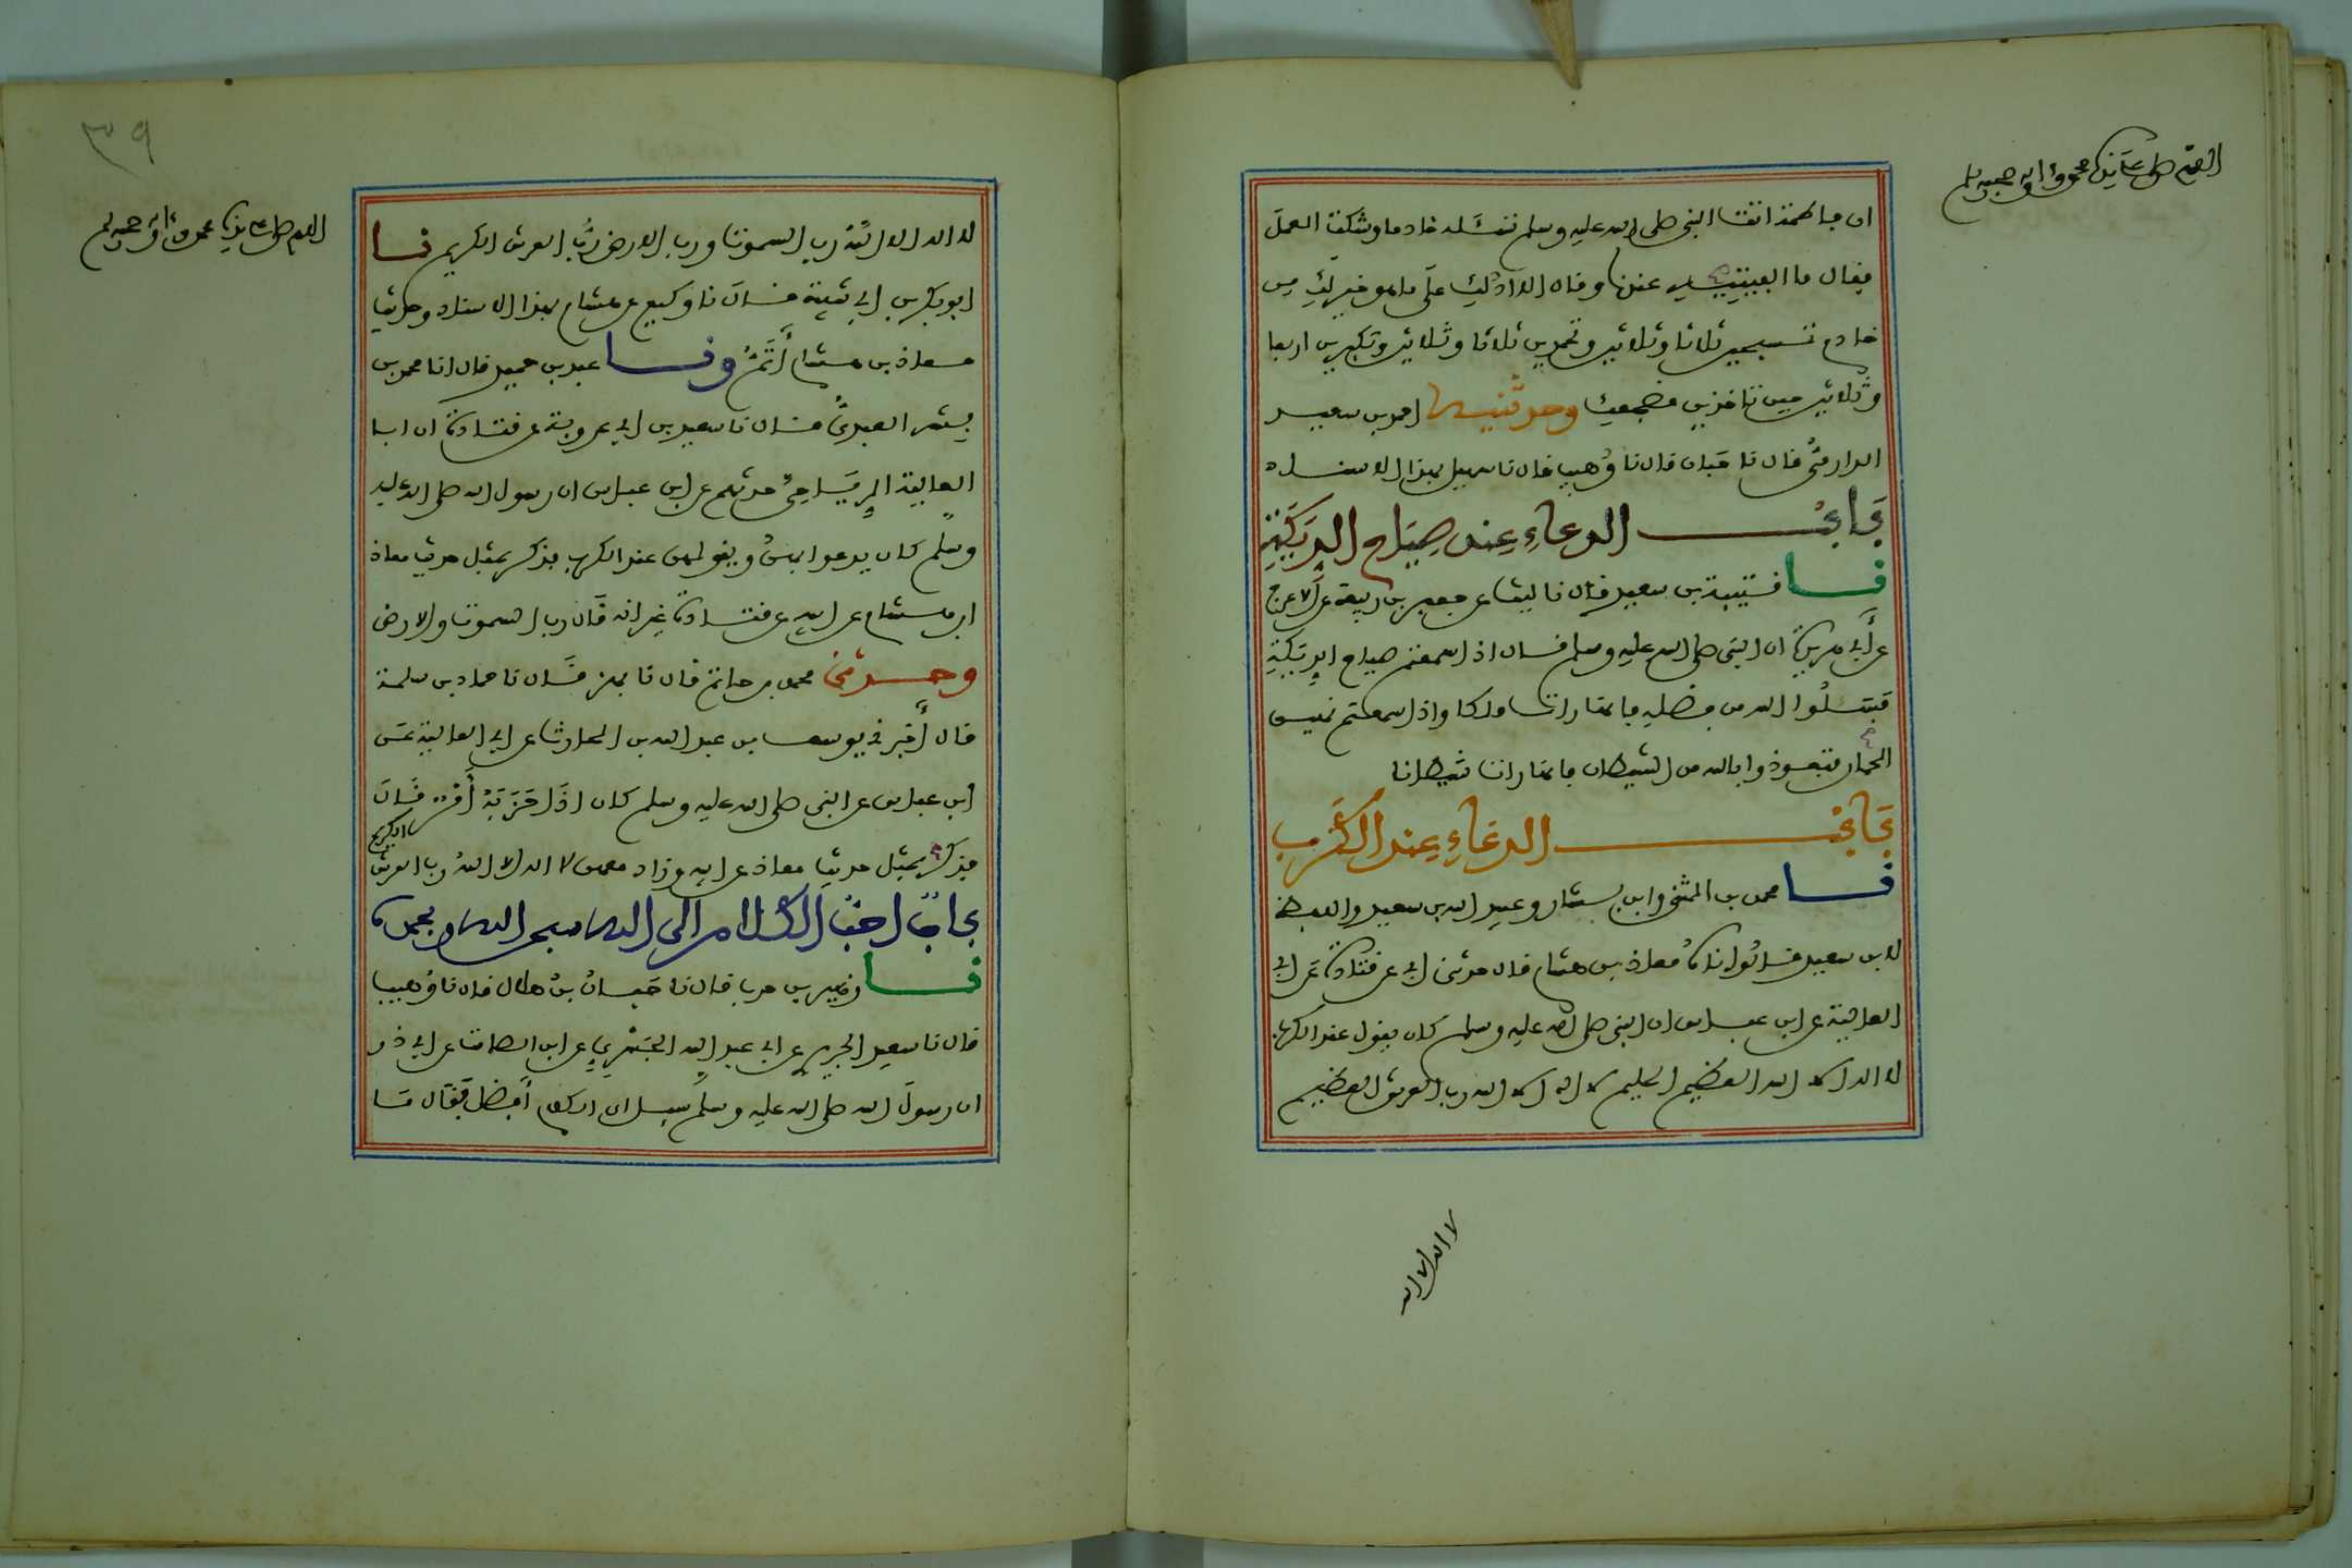 اللهم صل على سيدنا محمد وآله وصحبه وسلم
ان فاطمة اتت النبي صلى الله عليه وسلم تسئله خادما وشكت العمل
فقال ما الفيتيه عندنا وقال الا ادلك على ما هو خير لك من
خادم تسبحين ثلاثا وثلاثين وتحمدين ثلاثا وثلاثين وتكبرين اربعا
وثلاثين حين تاخذين مضجعك وحدثنيه احمد بن سعيد
الدارمي قال نا حبان قال نا وهيب قال نا سهيل بهذا الاسناد
باب الدعاء عند صياح الديكة
نا قتيبة بن سعيد قال نا ليث عن جعفر بن ربيعة عن الاعرج
عن أبي هريرة ان النبي صلى الله عليه وسلم قال اذا سمعتم صياح الديكة
فسئلوا الله من فضله فانها رات ملكا واذا سمعتم نهيق
الحمار فتعوذوا بالله من الشيطان فانها رات شيطانا
باب الدعاء عند الكرب
نا محمد بن المثنى وابن بشار وعبيد الله بن سعيد واللفظ
لابن سعيد قالوا نا معاذ بن هشام قال حدثني ابي عن قتادة عن ابي
العالية عن ابن عباس ان النبي صلى الله عليه وسلم كان يقول عند الكرب
لا اله الا الله العظيم الحليم لا اله الا الله رب العرش العظيم
لا اله الا الله
٣٩
اللهم صل على سيدنا محمد وآله وصحبه وسلم
لا اله الا الله رب السموت ورب الارض رب العرش الكريم نا
ابو بكر بن ابي شيبة قال نا وكيع عن هشام بهذا الاسناد وحديث
معاذ بن هشام أتم ونا عبد بن حميد قال انا محمد بن
بشر العبدي قال نا سعيد بن ابي عروبة عن قتادة ان ابا
العالية الرياحي حدثهم عن ابن عباس ان رسول الله صلى الله عليه
وسلم كان يدعوا بهن ويقولهن عند الكرب فذكر بمثل حديث معاذ
ابن هشام عن ابيه عن قتادة غير انه قال رب السموت والارض
وحدثني محمد بن حاتم قال نا بهز قال نا حماد بن سلمة
قال أخبرني يوسف بن عبد الله بن الحارث عن ابي العالية عن
ابن عباس عن النبي صلى الله عليه وسلم كان اذا حزبه أمر قال
فذكر بمثل حديث معاذ عن ابيه وزاد معهن لا اله الا الله رب العرش الكريم
باب احب الكلام الى الله سبحن الله وبحمده
نا زهير بن حرب قال نا حبان بن هلال قال نا وهيب
قال نا سعيد الجريري عن ابي عبد الله الجسري عن ابن الصامت عن ابي ذر
ان رسول الله صلى الله عليه وسلم سيل اي الكلام أفضل فقال ما